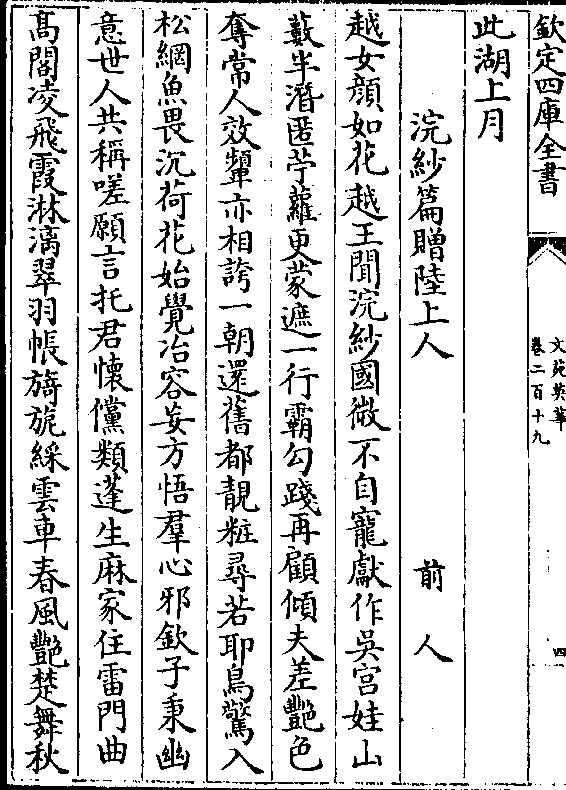 欽定四庫全書
文苑英華
卷二百十九
四
此湖上月
浣紗篇贈陸上人 前人
越女顏如花越王聞浣紗國微不自寵獻作吳宮娃山
藪半潛匿苧蘿更蒙遮一行霸勾踐再顧傾夫差艷色
奪常人效顰亦相誇一朝還舊都靚粧尋若耶鳥驚入
松網魚畏沉荷花始覺冶容妄方悟羣心邪欽子秉幽
意世人共稱嗟願言托君懷儻類蓬生麻家住雷門曲
髙閣凌飛霞淋漓翠羽帳旖旎綵雲車春風艷楚舞秋